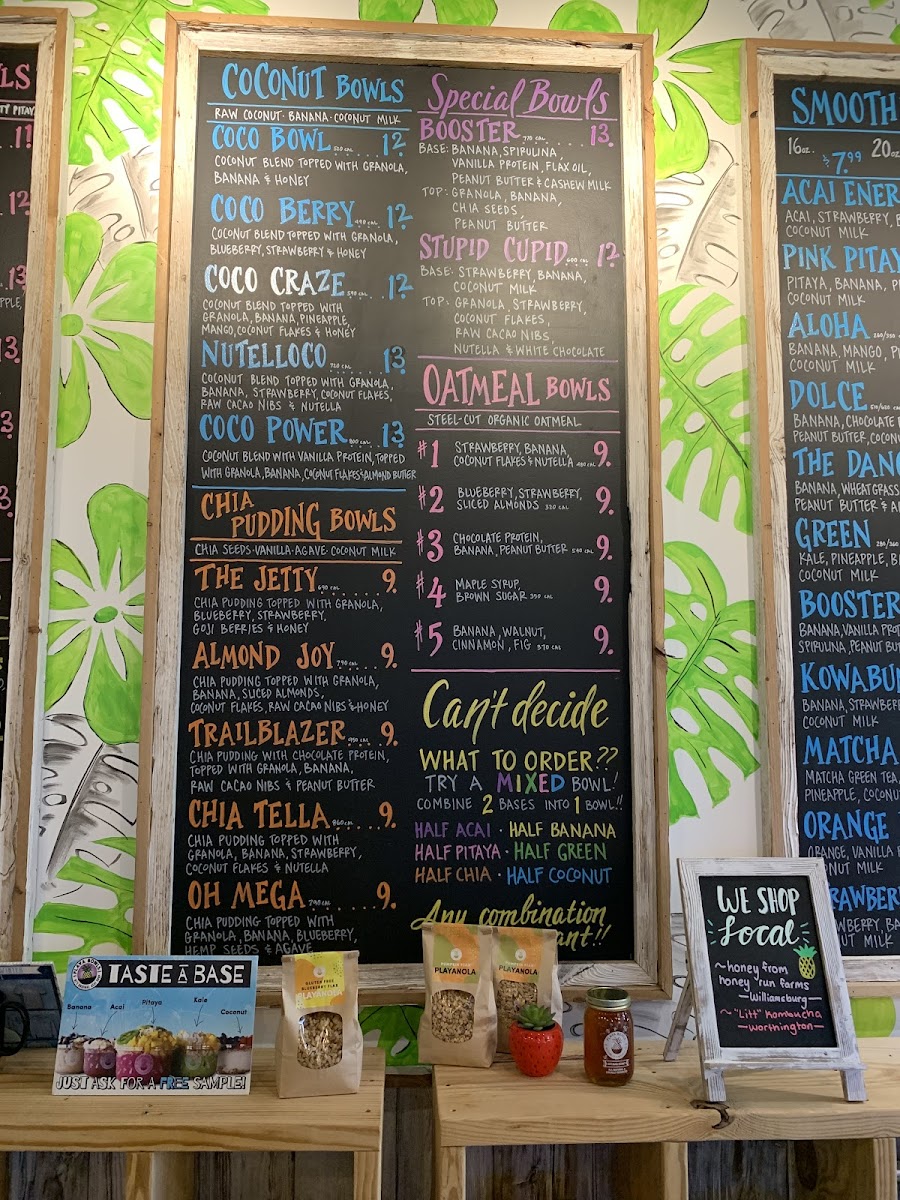 LS
11
12
13
13
3
3
COCONUT BOWLS
RAW COCONUT · BANANA · COCONUT MILK
COCO BOWL 12
COCONUT BLEND TOPPED WITH GRANOLA,
BANANA & HONEY
COCO BERRY 12
COCONUT BLEND TOPPED WITH GRANOLA,
BLUEBERRY, STRAWBERRY & HONEY
COCO CRAZE 12
COCONUT BLEND TOPPED WITH
GRANOLA, BANANA, PINEAPPLE,
MANGO, COCONUT FLAKES & HONEY
NUTELLOCO 13
COCONUT BLEND TOPPED WITH GRANOLA,
BANANA, STRAWBERRY, COCONUT FLAKES,
RAW CACAO NIBS & NUTELLA
COCO POWER 13
COCONUT BLEND WITH VANILLA PROTEIN, TOPPED
WITH GRANOLA, BANANA, COCONUT FLAKES & ALMOND BUTTER
CHIA
PUDDING BOWLS
CHIA SEEDS · VANILLA · AGAVE · COCONUT MILK
THE JETTY 690 CAL 9.
CHIA PUDDING TOPPED WITH GRANOLA,
BLUEBERRY, STRAWBERRY,
GOJI BERRIES & HONEY
ALMOND JOY 790 CAL 9.
CHIA PUDDING TOPPED WITH GRANOLA,
BANANA, SLICED ALMONDS,
COCONUT FLAKES, RAW CACAO NIBS & HONEY
TRAILBLAZER 9.
CHIA PUDDING WITH CHOCOLATE PROTEIN,
TOPPED WITH GRANOLA, BANANA,
RAW CACAO NIBS & PEANUT BUTTER
CHIA TELLA 860 CAL 9.
CHIA PUDDING TOPPED WITH
GRANOLA, BANANA, STRAWBERRY,
COCONUT FLAKES & NUTELLA
OH MEGA 790 CAL 9.
CHIA PUDDING TOPPED WITH
GRANOLA, BANANA, BLUEBERRY,
HEMP SEEDS & AGAVE
Special Bowls
BOOSTER 770 CAL 13
BASE: BANANA, SPIRULINA,
VANILLA PROTEIN, FLAX OIL,
PEANUT BUTTER & CASHEW MILK
TOP: GRANOLA, BANANA,
CHIA SEEDS,
PEANUT BUTTER
STUPID CUPID 600 CAL 12
BASE: STRAWBERRY, BANANA,
COCONUT MILK
TOP: GRANOLA, STRAWBERRY,
COCONUT FLAKES,
RAW CACAO NIBS,
NUTELLA & WHITE CHOCOLATE
OATMEAL BOWLS
STEEL-CUT ORGANIC OATMEAL
#1 STRAWBERRY, BANANA,
COCONUT FLAKES & NUTELLA 480 CAL 9.
#2 BLUEBERRY, STRAWBERRY,
SLICED ALMONDS 320 CAL 9.
#3 CHOCOLATE PROTEIN,
BANANA, PEANUT BUTTER 540 CAL 9.
#4 MAPLE SYRUP,
BROWN SUGAR 350 CAL 9.
#5 BANANA, WALNUT,
CINNAMON, FIG 370 CAL 9.
Can't decide
WHAT TO ORDER??
TRY A MIXED BOWL!
COMBINE 2 BASES INTO 1 BOWL!!
HALF ACAI · HALF BANANA
HALF PITAYA · HALF GREEN
HALF CHIA · HALF COCONUT
Any combination
ant!!
SMOOTH
16oz. 20oz
$7.99
ACAI ENER
ACAI, STRAWBERRY, B
COCONUT MILK
PINK PITAY
PITAYA, BANANA, P
COCONUT MILK
ALOHA
BANANA, MANGO, P
COCONUT MILK
DOLCE
BANANA, CHOCOLATE
PEANUT BUTTER, COCON
THE DANC
BANANA, WHEATGRASS
PEANUT BUTTER & A
GREEN
KALE, PINEAPPLE, B
COCONUT MILK
BOOSTER
BANANA, VANILLA PROT
SPIRULINA, PEANUT BUT
KOWABU
BANANA, STRAWBER
COCONUT MILK
MATCHA
MATCHA GREEN TEA,
PINEAPPLE, COCONU
ORANGE
ORANGE, VANILLA
COCONUT MILK
RAWBER
WBERRY, BA
NUT MILK
TASTE A BASE
Banana Acai Pitaya Kale Coconut
JUST ASK FOR A FREE SAMPLE!
GLUTEN FREE
BLUEBERRY FLAX
PLAYANOLA
PLAYANOLA
PLAYANOLA
WE SHOP
Local
~ honey from
honey 'run farms
—Williamsburg—
~ "Litt" Kombucha
—worthington—